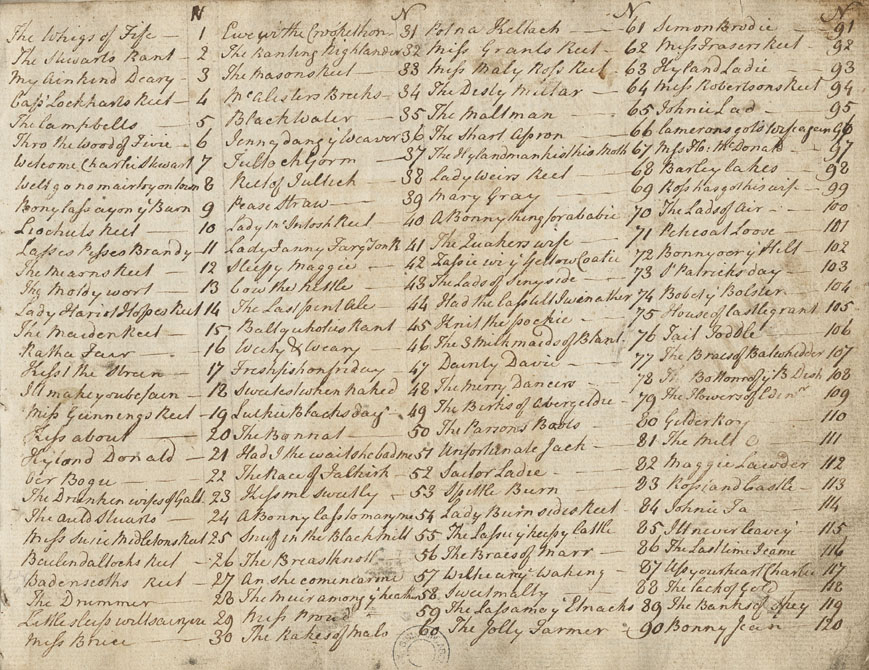 N
The Whigs of Fife — 1
The Stewarts Rant — 2
My Ain kind Deary — 3
Capt Lockharts Reel — 4
The Campbells 5
Thro the Wood of Fivie — 6
Welcome Charlie Stewart 7
We'll go no mair by on town 8
Bony lass ayon yᵉ Burn 9
Liocheils Reel — 10
Lasses Pesses Brandy — 11
The Mearns Reel — 12
The Moldy wort — 13
Lady Hariot Hopes Reel 14
The Maiden Reel — 15
Katha Fair — 16
Kiss't the Streen — 17
I'll make you be fain — 18
Miss Gunnings Reel — 19
Kiss about — 20
Hyland Donald — 21
O'er Bogie — 22
The Drunken wifes of Gall. 23
The Auld Stuarts — 24
Miss Susie Midletons Reel 25
Baulendallochs Reel — 26
Badenscoths Reel — 27
The Drummer — 28
Little 29
Miss Bruce — 30
N
Ewe wi the Crooket horn — 31
The Ranting Highlander 32
The Masons Reel — 33
McAlisters Breeks — 34
Black Water — 35
Jenny dang yᵉ Weaver 36
Tulloch Gorm — 37
Reel of Tulloch — 38
Pease Straw — 39
Lady Mc Intosh Reel — 40
Lady Fanny 41
Sleepy Maggie — 42
Cow the Kettle — 43
The Last pint Ale — 44
Balquholies Rant — 45
Weety & Weary — 46
Fresh fish on friday — 47
Sweetest when Naked 48
Luckie Blachs day — 49
The Bonnat — 50
Had I the wait she bad me 51
The Race of Falkirk — 52
Kiss me sweetly — 53
A Bonny lass to mary me 54
Snuf in the Black mill 55
The Breast knott — 56
An she come near me 57
The Muir among yᵉ heather 58
Miss Proud — 59
The Rakes of Malo 60
N
Pot na Kellach — 61
Miss Grants Reel — 62
Miss Maly Ross Reel 63
The Desty Millar — 64
The Maltman — 65
The Short Apron — 66
The Hylandman kist his Moth 67
Lady Weirs Reel — 68
Mary Gray — 69
A Bonny thing for a babie 70
The Quakers wife — 71
Lassie wi yᵉ Yellow Coatie 72
The Lads of Sinyside — 73
Had the lass till I winnather 74
Knit the pockie — 75
The 3 Milkmaids of Blant. 76
Daunty Davie — 77
The Merry Dancers — 78
The Birks of Abergeldie — 79
The Parsons Boots — 80
Unfortunate Jack — 81
Sailor Ladie — 82
Spittle Burn 83
Lady Burnsides Reel — 84
The Lass yᵗ keeps yᵉ Cattle 85
The Braes of Marr — 86
Willie any Waking — 87
Sweet Molly — 88
The Lass among yᵉ Elnachs 89
The Jolly Farmer — 90
N
Simon Brodie — 91
Miss Frasers Reel — 92
Hyland Ladie — 93
Miss Robertsons Reel 94
Johnie Lad — 95
Camerons got his wife again 96
Miss Flo: McDonald — 97
Barley Cakes — 98
Ross has got his wife — 99
The Lads of Air — 100
Peticoat Loose — 101
Bonny oer yᵉ Hill 102
St Patricks day — 103
Bob at yᵉ Bolster — 104
House of Castle grant 105
Tail Toddle — 106
The Braes of Balwhidder 107
The Bottom of yᵉ B. Dish 108
The Flowers of Edinr 109
Gilder Roy — 110
The Mill O — 111
Maggie Lawder 112
Rossland Castle — 113
Johnie Fa 114
I'll never leave yᵉ 115
The Last time I came 116
Up so your heart Charlie 117
The lack of Gold 118
The Banks of Spey 119
Bonny Jean — 120